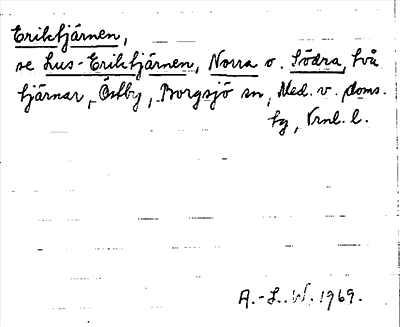 Eriktjärnen,
se Lus-Eriktjärnen, Norra o. Södra, två
tjärnar, Östby, Borgsjö sn, Med. v. doms.
hg, Vrnl. l.
A.-L. W. 1969.